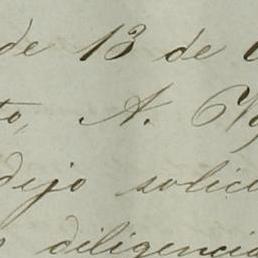 de 13 de
to, A.
dijo solici
diligencia